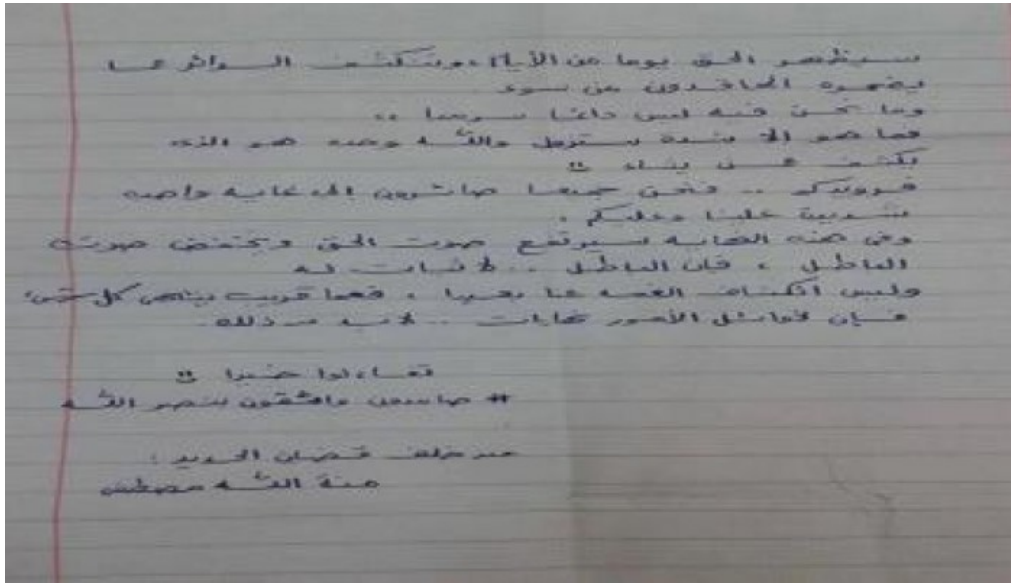 سيظهر الحق يوما من الأيام وتنكشف السرائر عما
يضمره الحاقدون من سوء
وما نحن فيه ليس دائما سرمديا ..
فما هو إلا شدة ستزول والله وحده هو الذى
يكشف عن يشاء
فرويدكم .. فنحن جميعا صائرون إلى غاية واحدة
علينا وعليكم .
وفى هذه النهاية سيرتفع صوت الحق وينخفض صوت
الباطل ، فإن الباطل .. لا ثبات له
وليس انكشاف الغمة عنا بعيدا ، فعما قريب ينتهى كل شىء
فإن الأمور نهايات .. لابد من ذلك
تفاءلوا خيرا
# صامدون واثقون بنصر الله
من خلف قضبان الحديد :
منة الله مصطفى